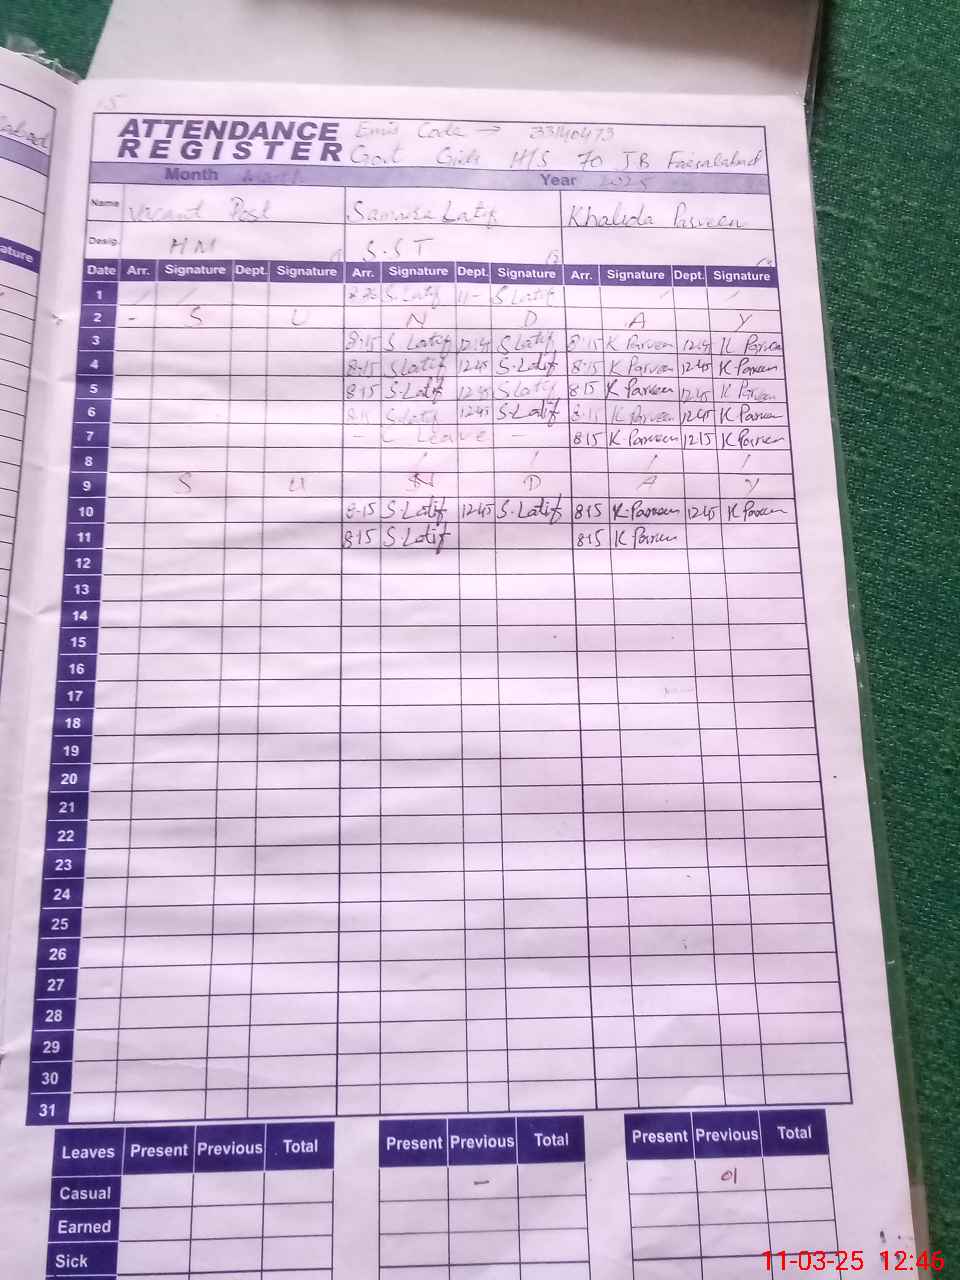 15
ATTENDANCE REGISTER
Emis Code → 33140473
Govt Girls H/S 70 J.B Faisalabad
Month March Year 2025
Name Vacant Post Samaira Latif Khalida Parveen
Desig. HM S.S.T
Date Arr. Signature Dept. Signature Arr. Signature Dept. Signature Arr. Signature Dept. Signature
1 S.Latif 11- S Latif
2 - S U N D A Y
3 8-15 S Latif 12:45 S Latif 8-15 K Parveen 1245 K Parveen
4 8-15 S Latif 1245 S.Latif 8-15 K Parveen 1245 K Parveen
5 8-15 S-Latif 1245 S Latif 8-15 K Parveen 1245 K Parveen
6 8-15 S Latif 1245 S-Latif 8-15 K Parveen 1245 K Parveen
7 - C Leave - 8-15 K-Parveen 1215 K Parveen
8
9 S U N D A Y
10 8-15 S-Latif 1245 S-Latif 8-15 K-Parveen 1245 K Parveen
11 8-15 S-Latif 8-15 K Parveen
12
13
14
15
16
17
18
19
20
21
22
23
24
25
26
27
28
29
30
31
Leaves Present Previous Total Present Previous Total Present Previous Total
Casual - 01
Earned
Sick
11-03-25 12:46